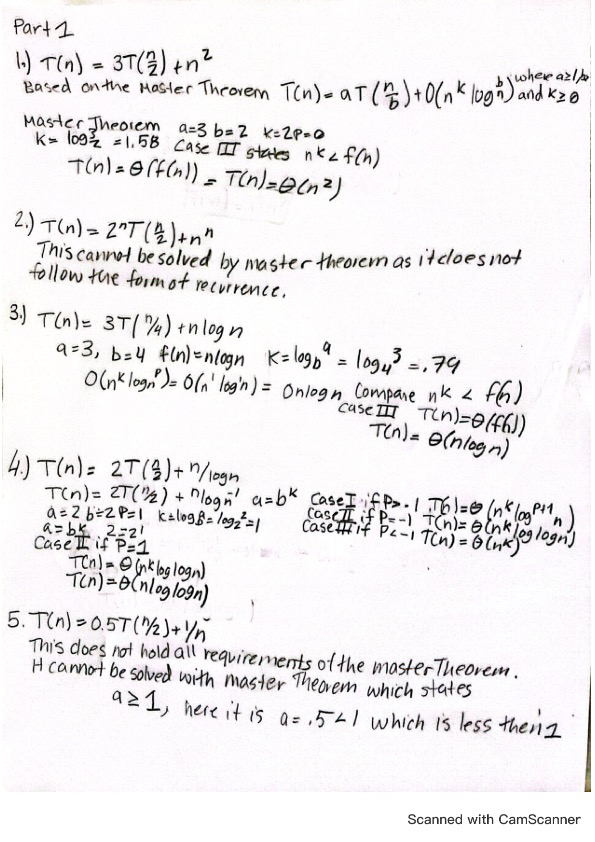 Part 1
1.) T(n) = 3T(n/2) + n²
Based on the Master Threorem T(n) = aT(n/b) + O(n^k log^b n) where a≥1, b>
and k≥0
Master Theorem a=3 b=2 k=2 P=0
K = log₂3 = 1.58 Case III states n^k < f(n)
T(n) = Θ(f(n)) = T(n) = Θ(n²)
2.) T(n) = 2ⁿT(n/2) + nⁿ
This cannot be solved by master theorem as it does not
follow the form of recurrence.
3.) T(n) = 3T(n/4) + n log n
a=3, b=4 f(n)=nlogn K = log_b a = log₄3 = .79
O(n^k log n^p) = O(n' log'n) = Onlogn Compare n^k < f(n)
Case III T(n)=Θ(f(n))
T(n) = Θ(nlogn)
4.) T(n) = 2T(n/2) + n/logn
T(n) = 2T(n/2) + n log n⁻¹ a=b^k Case I if P>-1 T(n)=Θ(n^k log^(P+1) n)
a=2 b=2 P=1 k=logB=log₂2=1 Case II if P=-1 T(n)=Θ(n^k log logn)
a=b^k 2=21 Case III if P<-1 T(n)=Θ(n^k)
Case II if P=1
T(n) = Θ(n^k log logn)
T(n) = Θ(nloglogn)
5. T(n) = 0.5T(n/2) + 1/n
This does not hold all requirements of the master Theorem.
It cannot be solved with master Theorem which states
a ≥ 1, here it is a = .5 < 1 which is less then 1
Scanned with CamScanner